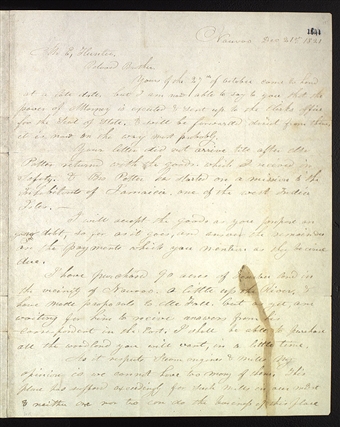 1641
Nauvoo Dec 21st 1841.
Mr E. Hunter,
Beloved Brother
Yours of the 27th of October came to hand
at a late date, but I am now able to say to you that the
power of Attorney is executed & sent up to the Clerks office
for the Seal of State, & will be forwarded direct from there,
it is now on the way most probably.
Your letter did not arrive till after Mr
Potter returned with the goods which I received in
safety. & Mr Potter has started on a mission to the
Inhabitants of Jamaica, one of the west Indies
Isles. —
I will accept the goods as you propose on
my debt, so far as it goes, and answer the remainder
in the payments which you mention as they become
due.
I have purchased 90 acres of timber land in
the vicinity of Nauvoo. A little up the River, &
have made proposals to Mr Hall, but as yet, am
waiting for him to receive answers from his
correspondent in the East. I shall be able to purchase
all the woodland you will want, in a little time.
As it respects Steam engines & mills, my
opinion is we cannot have too many of them. This
place has suffered exceedingly for such mills in our midst
& neither one nor two can do the business of this place